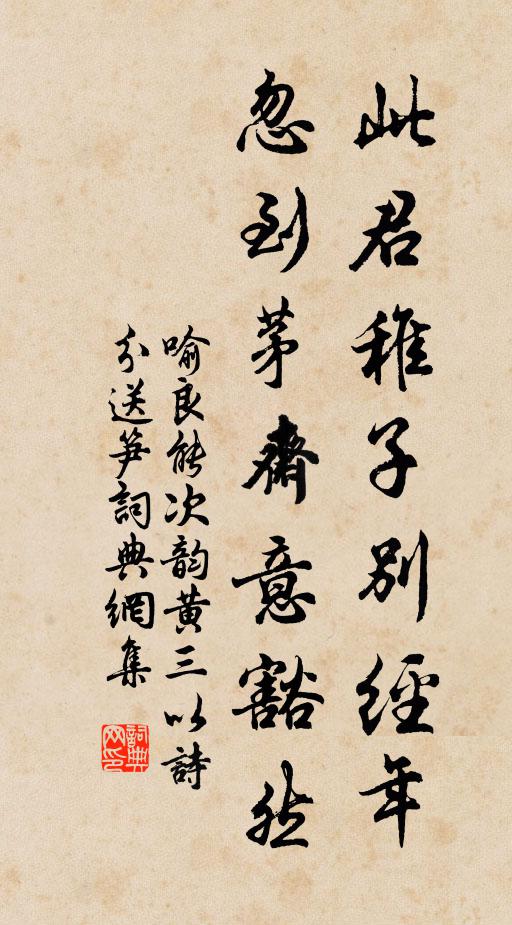 此君稚子别經年
忽到茅齋意豁然
喻良能次韵黄三以詩
分送笋詞典網集
詞典网印